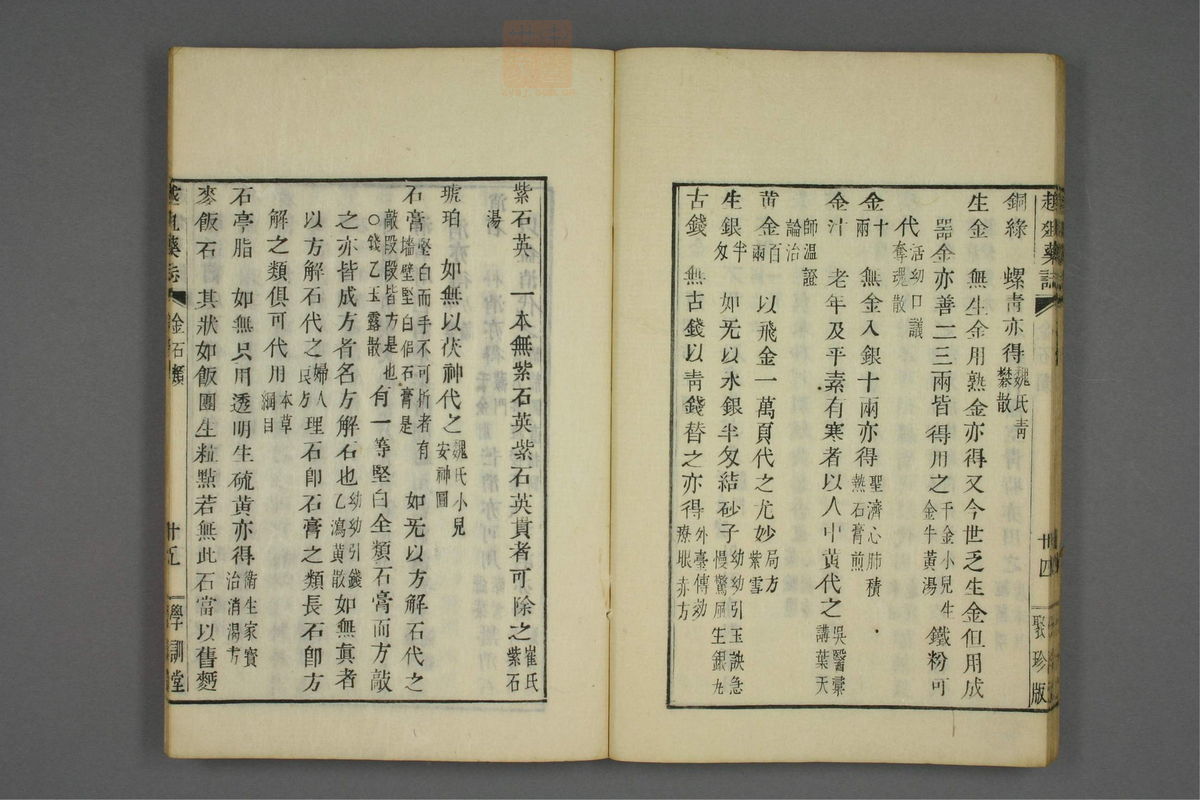 趙組藥誌
廿四
聚珍版
銅綠 螺青亦得魏氏青礬散
生金 無生金用熟金亦得又今世乏生金但用成
器金亦善二三兩皆得用之千金小兒生金牛黃湯 鐵粉可
代活幼口議奪魂散
金十兩 無金入銀十兩亦得聖濟心肺積熱石膏煎
金汁 老年及平素有寒者以人中黃代之吳醫彙講葉天
師溫證論治
黃金百兩 以飛金一萬頁代之尤妙局方紫雪
生銀半匁 如无以水銀半匁結砂子幼幼引玉訣急慢驚風生銀丸
古錢 無古錢以青錢替之亦得外臺傳効療眼赤方
紫石英 一本無紫石英紫石英貫者可除之崔氏紫石
湯
琥珀 如無以茯神代之魏氏小兒安神圓
石膏堅白而手不可折者有墻壁堅白侣石膏是 如无以方解石代之
敲段段皆方是也○錢乙玉露散 有一等堅白全類石膏而方敲
之亦皆成方者名方解石也幼幼引錢乙瀉黃散 如無眞者
以方解石代之婦人良方 理石卽石膏之類長石卽方
解之類俱可代用本草綱目
石亭脂 如無只用透明生硫黃亦得衞生家寶治消湯方
麥飯石 其狀如飯團生粒點若無此石當以舊麪
金石類
廿五
學訓堂